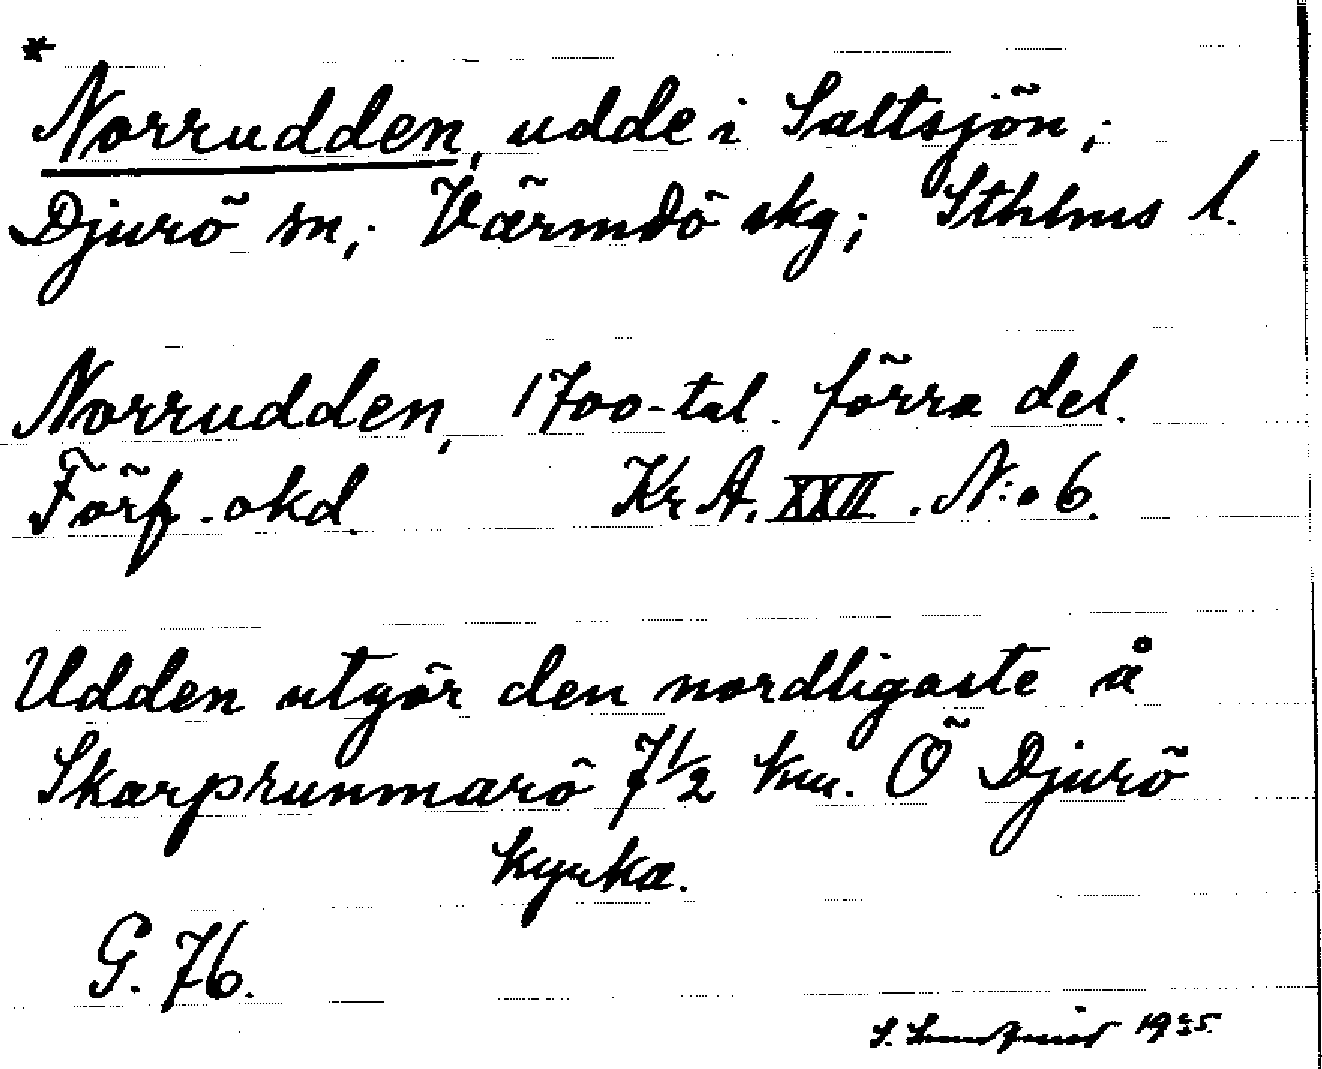 *
Norrudden, udde i Saltsjön;
Djurö sn; Värmdö skg; Sthlms l.
Norrudden, 1700-tal. förra del.
Förf. okd. Kr A. XXII. N:o 6.
Udden utgör den nordligaste å
Skarprunmarö 7 1/2 km. Ö Djurö
kyrka.
G. 76.
S. 1935.